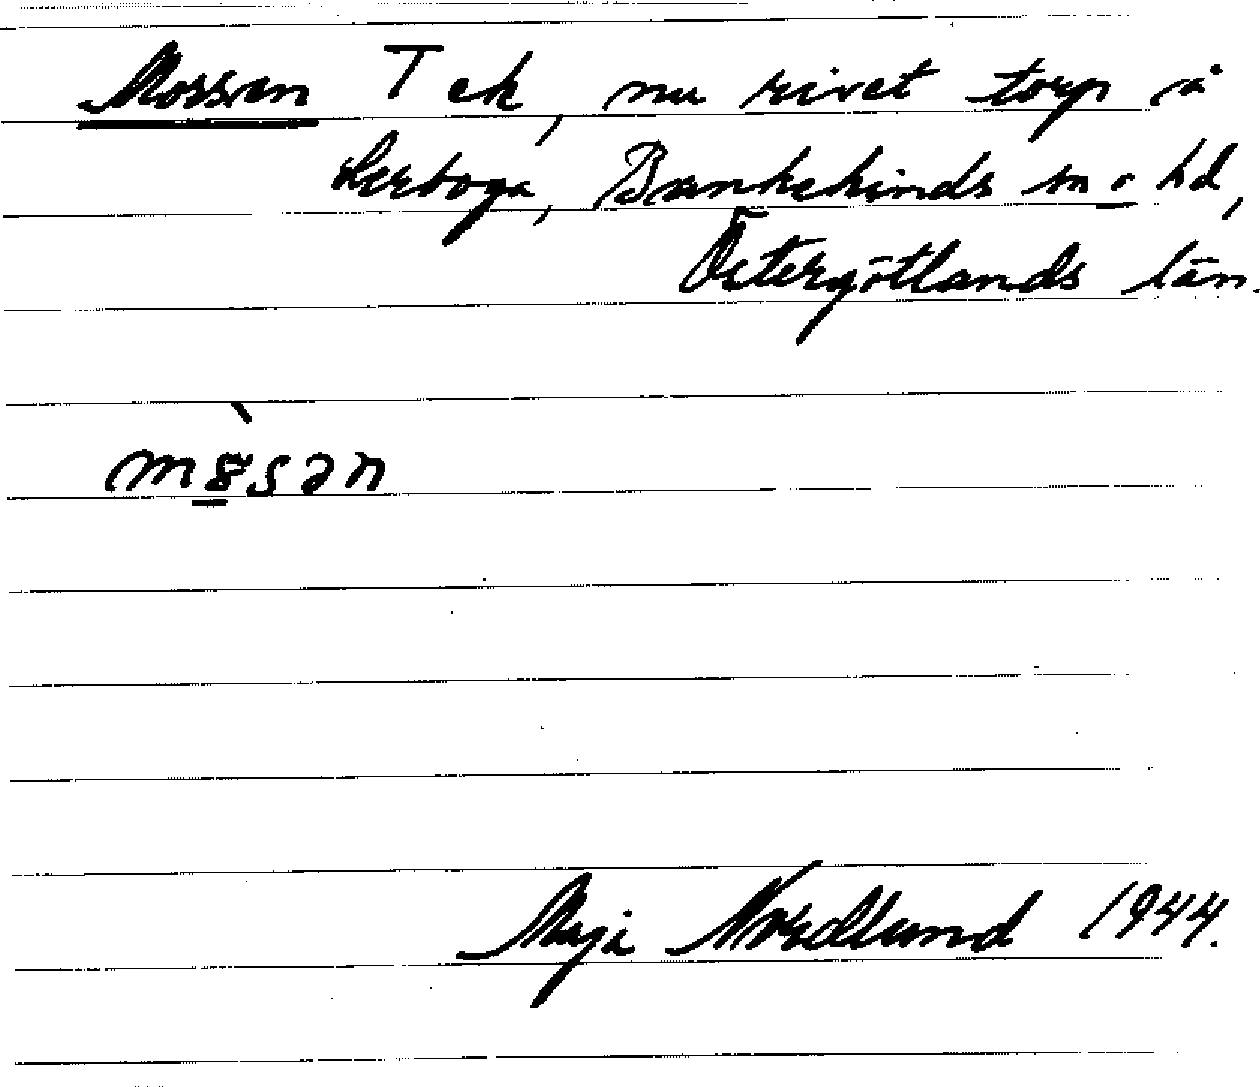 Mossen T ek, nu rivet torp å
Lerboga, Bankekinds sn o hd,
Östergötlands län.
Maja Nordlund 1944.